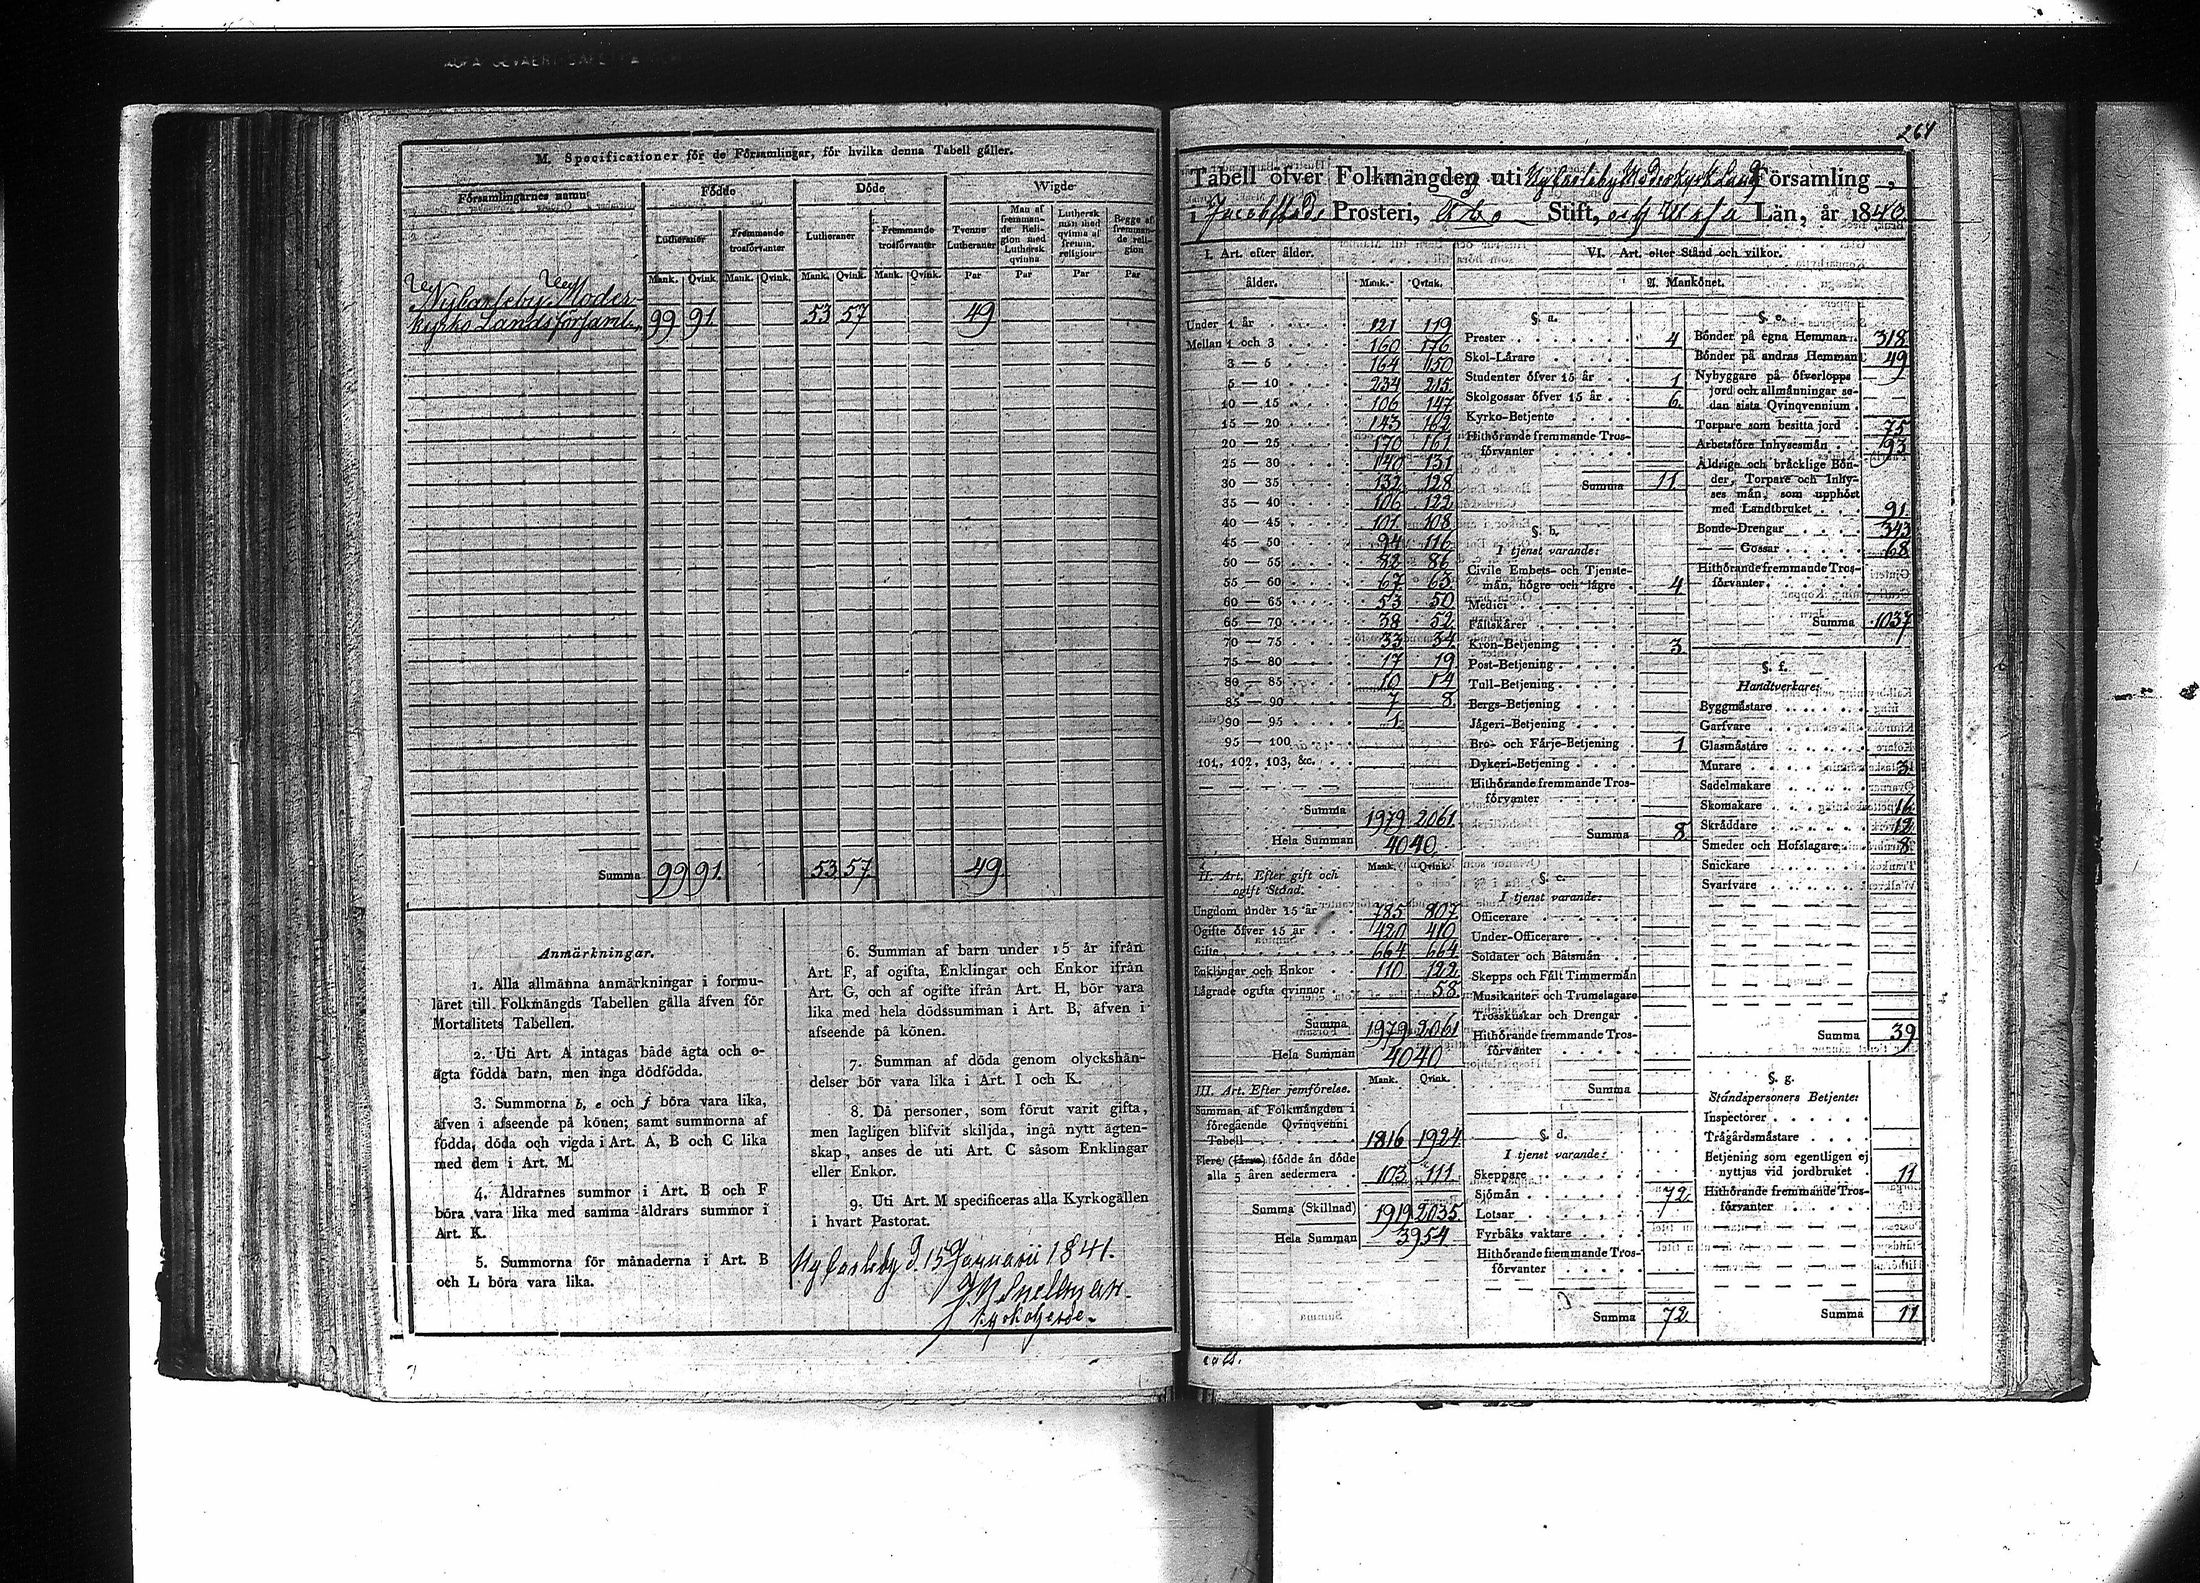 M. Specificationer för de Församlingar, för hvilka denna Tabell gäller.
Församlingarnes namn
Födde
Döde
Wigde
Lutheraner
Fremmande trosförvanter
Lutheraner
Fremmande trosförvanter
Tvenne Lutheraner
Man af fremmande Religion med Luthersk qvinna
Luthersk man med qvinna af fremm. religion
Begge af fremmande religion
Mank. Qvink. Mank. Qvink. Mank. Qvink. Mank. Qvink. Par Par Par Par
Nykarleby Moder
kyrko Landsförsaml. 99 91. 53 57 49
Summa 99 91. 53 57 49
Anmärkningar.
1. Alla allmänna anmärkningar i formu-
läret till Folkmängds Tabellen gälla äfven för
Mortalitets Tabellen.
2. Uti Art. A intagas både ägta och o-
ägta födda barn, men inga dödfödda.
3. Summorna b, e och f böra vara lika,
äfven i afseende på könen; samt summorna af
födda, döda och vigda i Art. A, B och C lika
med dem i Art. M.
4. Åldrarnes summor i Art. B och F
böra vara lika med samma åldrars summor i
Art. K.
5. Summorna för månaderna i Art. B
och L böra vara lika.
6. Summan af barn under 15 år ifrån
Art. F, af ogifta, Enklingar och Enkor ifrån
Art. G, och af ogifte ifrån Art. H, bör vara
lika med hela dödssumman i Art. B, äfven i
afseende på könen.
7. Summan af döda genom olyckshän-
delser bör vara lika i Art. I och K.
8. Då personer, som förut varit gifta,
men lagligen blifvit skiljda, ingå nytt ägten-
skap, anses de uti Art. C såsom Enklingar
eller Enkor.
9. Uti Art. M specificeras alla Kyrkogällen
i hvart Pastorat.
Nykarleby d. 15 Januarii 1841.
J Snellman
Kyrkoherde.
264
Tabell öfver Folkmängden uti Nykarleby Moderkyrk Lands Församling,
i Jacobstads Prosteri, Åbo Stift, och Wasa Län, år 1840.
I. Art. efter ålder.
ålder. Mank. Qvink.
Under 1 år 121 119
Mellan 1 och 3 160 176
3 — 5 164 150
5 — 10 234 215
10 — 15 106 147
15 — 20 143 162
20 — 25 170 161
25 — 30 140 131
30 — 35 132 128
35 — 40 106 122
40 — 45 101 108
45 — 50 94 116
50 — 55 82 86
55 — 60 67 63
60 — 65 53 50
65 — 70 38 52
70 — 75 33 34
75 — 80 17 19
80 — 85 10 14
85 — 90 7 8
90 — 95 1
95 — 100
101, 102, 103, &c.
Summa 1979 2061
Hela Summan 4040
II. Art. Efter gift och ogift Stånd. Mank. Qvink.
Ungdom under 15 år 785 807
Ogifte öfver 15 år 420 410
Gifte 664 664
Enklingar och Enkor 110 122
Lägrade ogifta qvinnor 58
Summa 1979 2061
Hela Summan 4040
III. Art. Efter jemförelse. Mank. Qvink.
Summan af Folkmängden i
föregående Qvinqvenni
Tabell 1816 1924
Flere (färre) födde än döde
alla 5 åren sedermera 103 111
Summa (Skillnad) 1919 2035
Hela Summan 3954
VI. Art. efter Stånd och vilkor.
A. Mankönet.
§. a.
Prester 4
Skol-Lärare
Studenter öfver 15 år 1
Skolgossar öfver 15 år 6
Kyrko-Betjente
Hithörande fremmande Tros-
förvanter
Summa 11
§. b.
I tjenst varande:
Civile Embets- och Tjenste-
män, högre och lägre 4
Medici
Fältskärer
Kron-Betjening 3
Post-Betjening
Tull-Betjening
Bergs-Betjening
Jägeri-Betjening
Bro- och Färje-Betjening 1
Dykeri-Betjening
Hithörande fremmande Tros-
förvanter
Summa 8
§. c.
I tjenst varande:
Officerare
Under-Officerare
Soldater och Båtsmän
Skepps och Fält Timmermän
Musikanter och Trumslagare
Trosskuskar och Drengar
Hithörande fremmande Tros-
förvanter
Summa
§. d.
I tjenst varande:
Skeppare
Sjömän 72
Lotsar
Fyrbåks vaktare
Hithörande fremmande Tros-
förvanter
Summa 72
§. e.
Bönder på egna Hemman 318
Bönder på andras Hemman 49
Nybyggare på öfverlopps
jord och allmänningar se-
dan sista Qvinqvennium
Torpare som besitta jord 75
Arbetsföre Inhysesmän 93
Åldrige och bräcklige Bön-
der, Torpare och Inhy-
ses män, som upphört
med Landtbruket 91
Bonde-Drengar 343
— — Gossar 68
Hithörande fremmande Tros-
förvanter
Summa 1037
§. f.
Handtverkare:
Byggmästare
Garfvare
Glasmästare
Murare 3
Sadelmakare
Skomakare 16
Skräddare 12
Smeder och Hofslagare 8
Snickare
Svarfvare
Summa 39
§. g.
Ståndspersoners Betjente:
Inspectorer
Trägårdsmästare
Betjening som egentligen ej
nyttjas vid jordbruket 11
Hithörande fremmande Tros-
förvanter
Summa 11